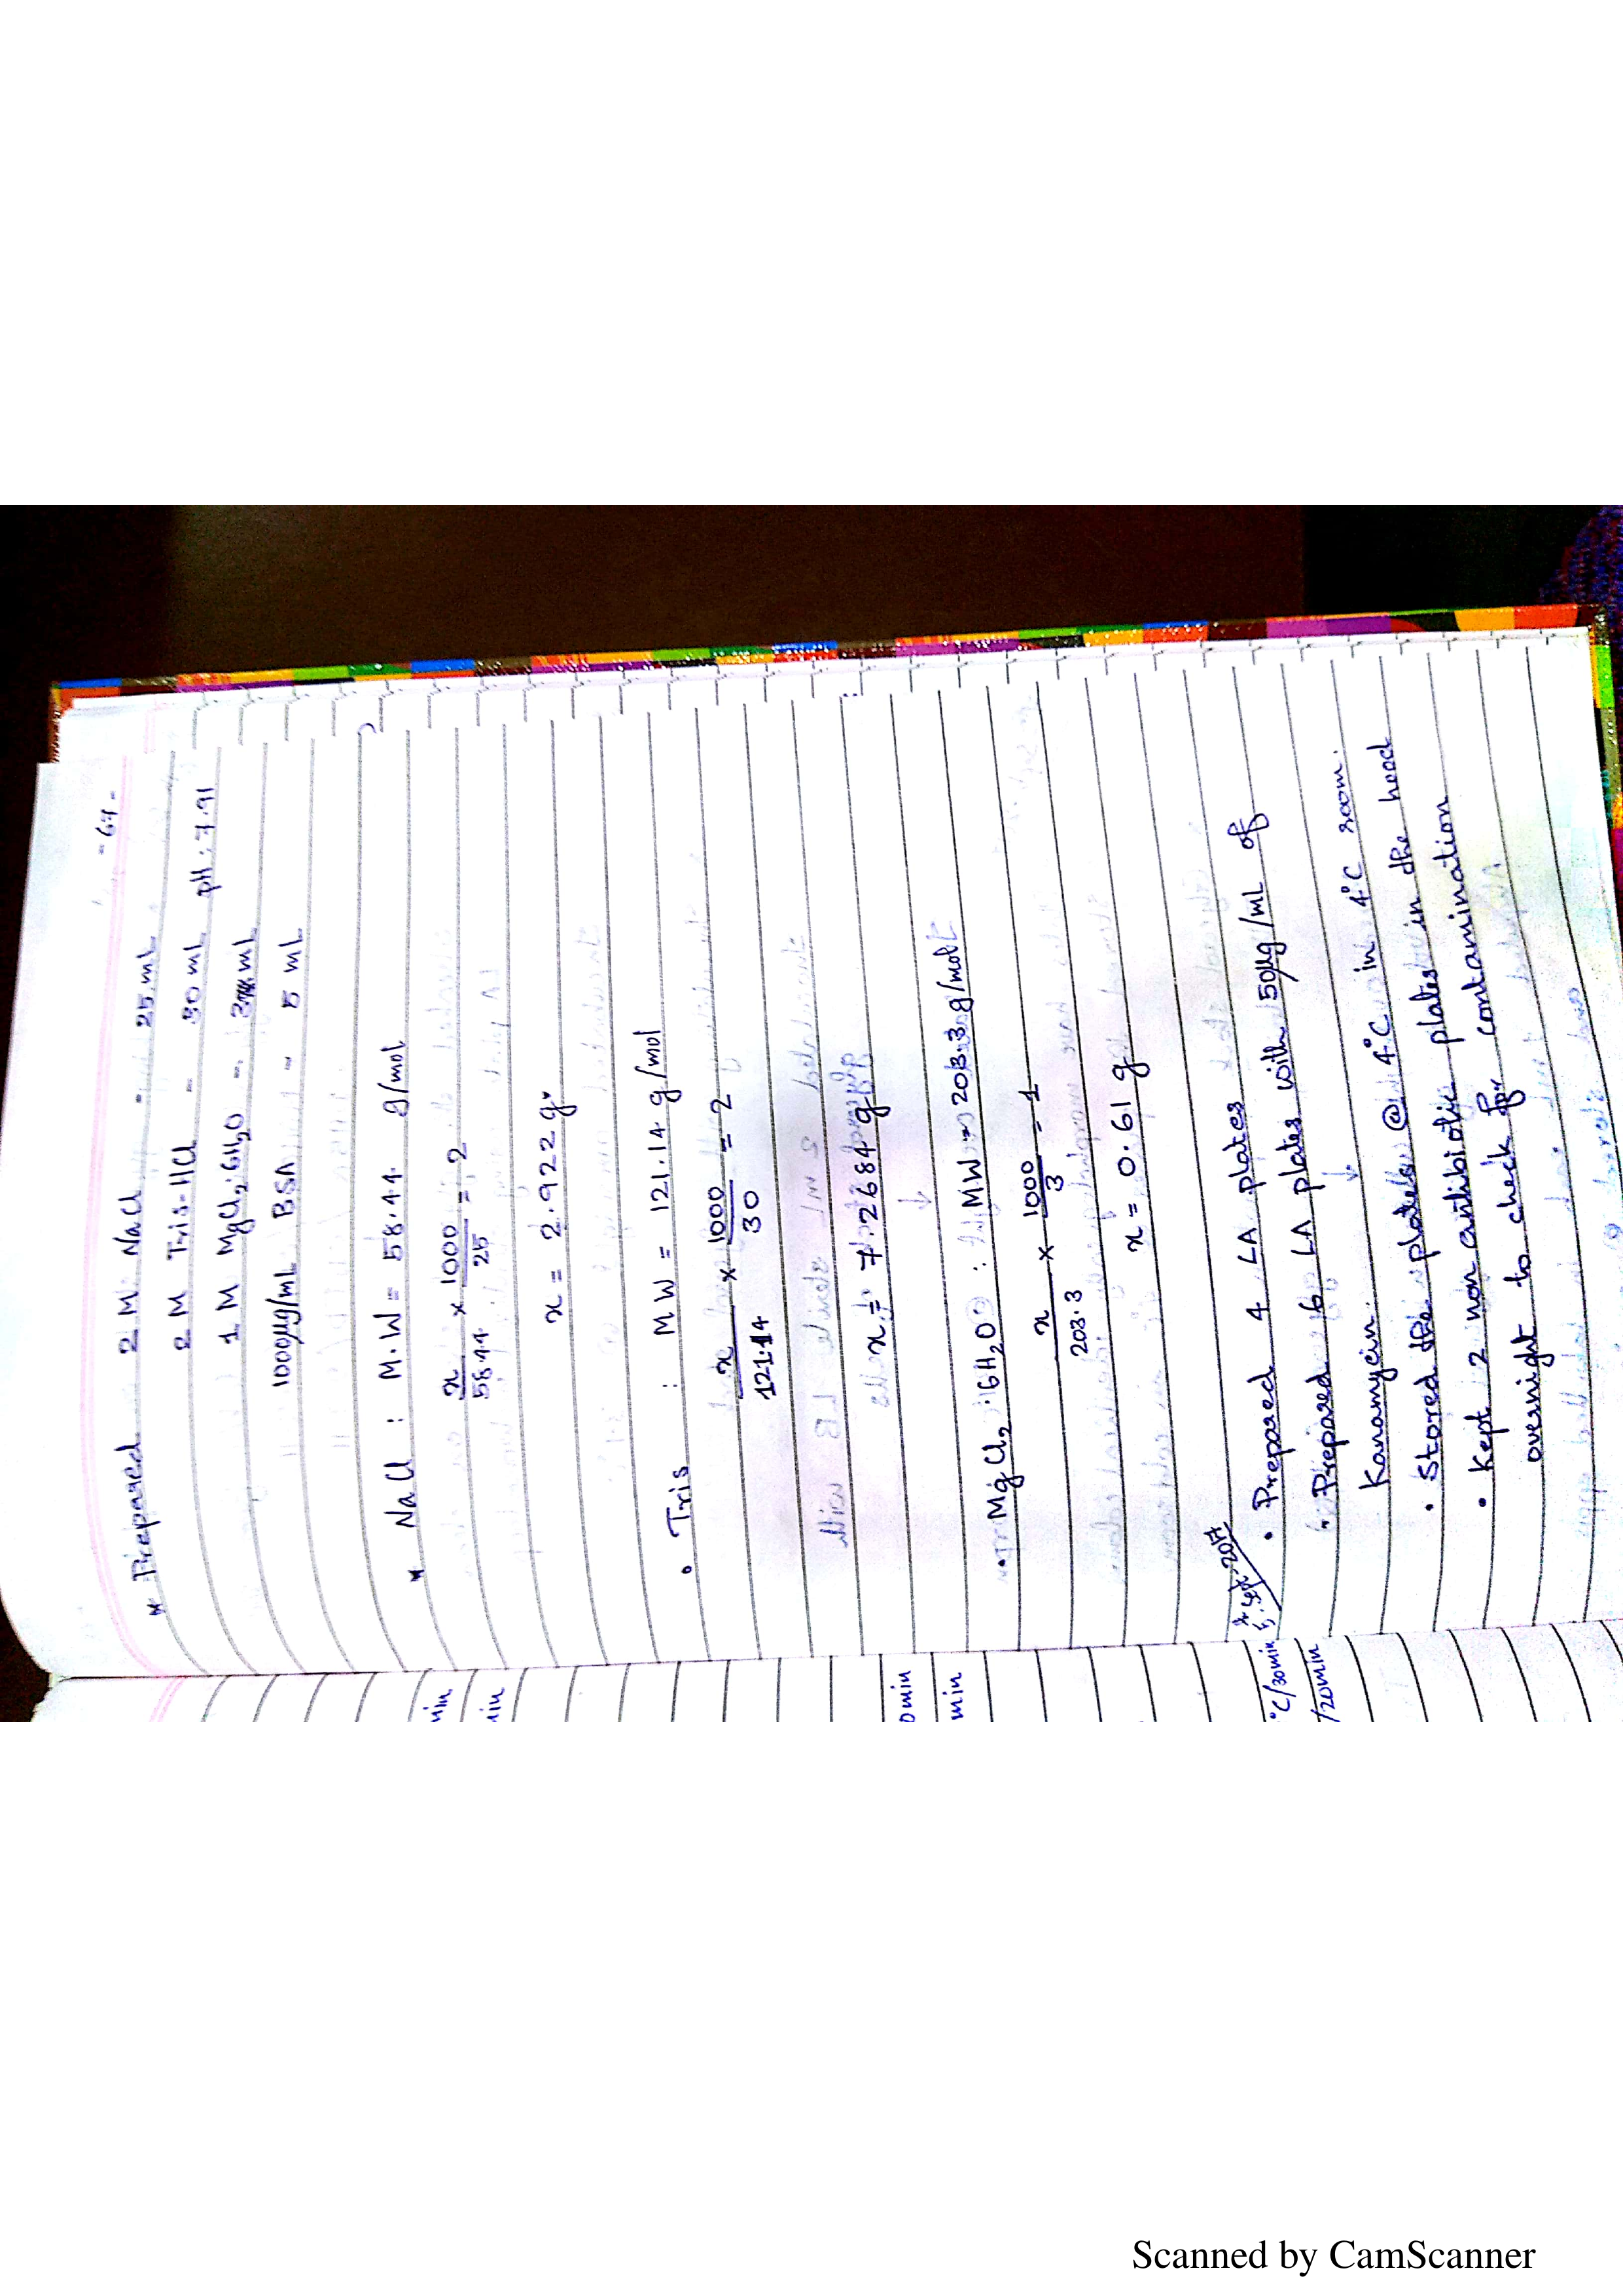 - 67 -
* Prepared 2 M NaCl - 25 mL
2 M Tris-HCl - 30 mL pH: 7.91
1 M MgCl2.6H2O - 3 mL
1000µg/mL BSA - 5 mL
* NaCl : M.W = 58.44 g/mol
x/58.44 × 1000/25 = 2
x = 2.922 g
• Tris : MW = 121.14 g/mol
x/121.14 × 1000/30 = 2
x = 7.2684 g
• MgCl2.6H2O : MW = 203.3 g/mol
x/203.3 × 1000/3 = 1
x = 0.61 g
Sept 2017
• Prepared 4 LA plates
• Prepared 6 LA plates with 50µg/mL of
Kanamycin.
• Stored the plates @ 4°C in 4°C room.
• Kept 2 non antibiotic plates in the hood
overnight to check for contamination
min
min
0 min
min
°C/30min
/20min
Scanned by CamScanner